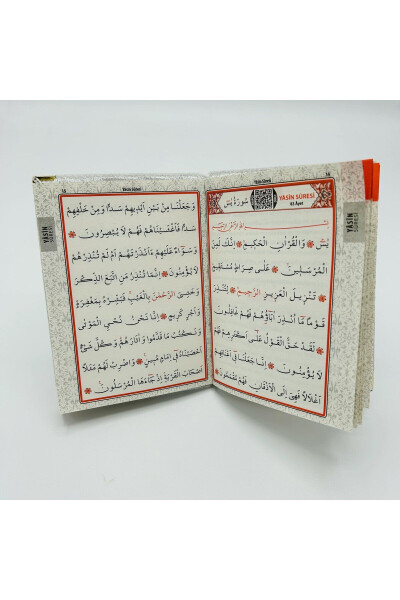 Yâsîn Sûresi
14
YÂSÎN SÛRESİ
83 Âyet
سُورَةُ يٰسٓ
يٰسٓ ❁ وَالْقُرْاٰنِ الْحَكٖيمِ ❁ اِنَّكَ لَمِنَ
الْمُرْسَلٖينَ ❁ عَلٰى صِرَاطٍ مُسْتَقٖيمٍ
❁ تَنْزٖيلَ الْعَزٖيزِ الرَّحٖيمِ ❁ لِتُنْذِرَ
قَوْمًا مَٓا اُنْذِرَ اٰبَٓاؤُ۬هُمْ فَهُمْ غَافِلُونَ
❁ لَقَدْ حَقَّ الْقَوْلُ عَلٰٓى اَكْثَرِهِمْ فَهُمْ
لَا يُؤْمِنُونَ ❁ اِنَّا جَعَلْنَا فٖٓي اَعْنَاقِهِمْ
اَغْلَالًا فَهِيَ اِلَى الْاَذْقَانِ فَهُمْ مُقْمَحُونَ ❁
YÂSÎN
SÛRESİ
Yâsîn Sûresi
وَجَعَلْنَا مِنْ بَيْنِ اَيْدٖيهِمْ سَدًّا وَمِنْ خَلْفِهِمْ
سَدًّا فَاَغْشَيْنَاهُمْ فَهُمْ لَا يُبْصِرُونَ ❁
وَسَوَٓاءٌ عَلَيْهِمْ ءَاَنْذَرْتَهُمْ اَمْ لَمْ تُنْذِرْهُمْ
لَا يُؤْمِنُونَ ❁ اِنَّمَا تُنْذِرُ مَنِ اتَّبَعَ الذِّكْرَ
وَخَشِيَ الرَّحْمٰنَ بِالْغَيْبِ فَبَشِّرْهُ بِمَغْفِرَةٍ
وَاَجْرٍ كَرٖيمٍ ❁ اِنَّا نَحْنُ نُحْيِ الْمَوْتٰى
وَنَكْتُبُ مَا قَدَّمُوا وَاٰثَارَهُمْ وَكُلَّ شَيْءٍ
اَحْصَيْنَاهُ فٖٓي اِمَامٍ مُبٖينٍ ❁ وَاضْرِبْ لَهُمْ مَثَلًا
اَصْحَابَ الْقَرْيَةِ اِذْ جَٓاءَهَا الْمُرْسَلُونَ ❁